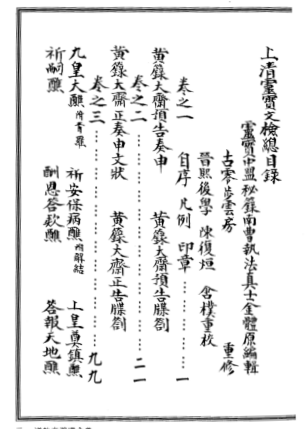 上清靈寶文檢總目錄
靈寶中盟秘籙南曹執法真士金體原編輯
古零 雲房 重修
晉熙後學 陳復烜 含樸重校
卷之一 自序 凡例 印章 一
黃籙大齋預告奏申 黃籙大齋預告牒劄
卷之二 二一
黃籙大齋正奏申文狀 黃籙大齋正告牒劄
卷之三 九九
九皇大醮 附青羅 祈安保病醮 附解結 上皇奠鎮醮
祈嗣醮 酬恩答款醮 答報天地醮